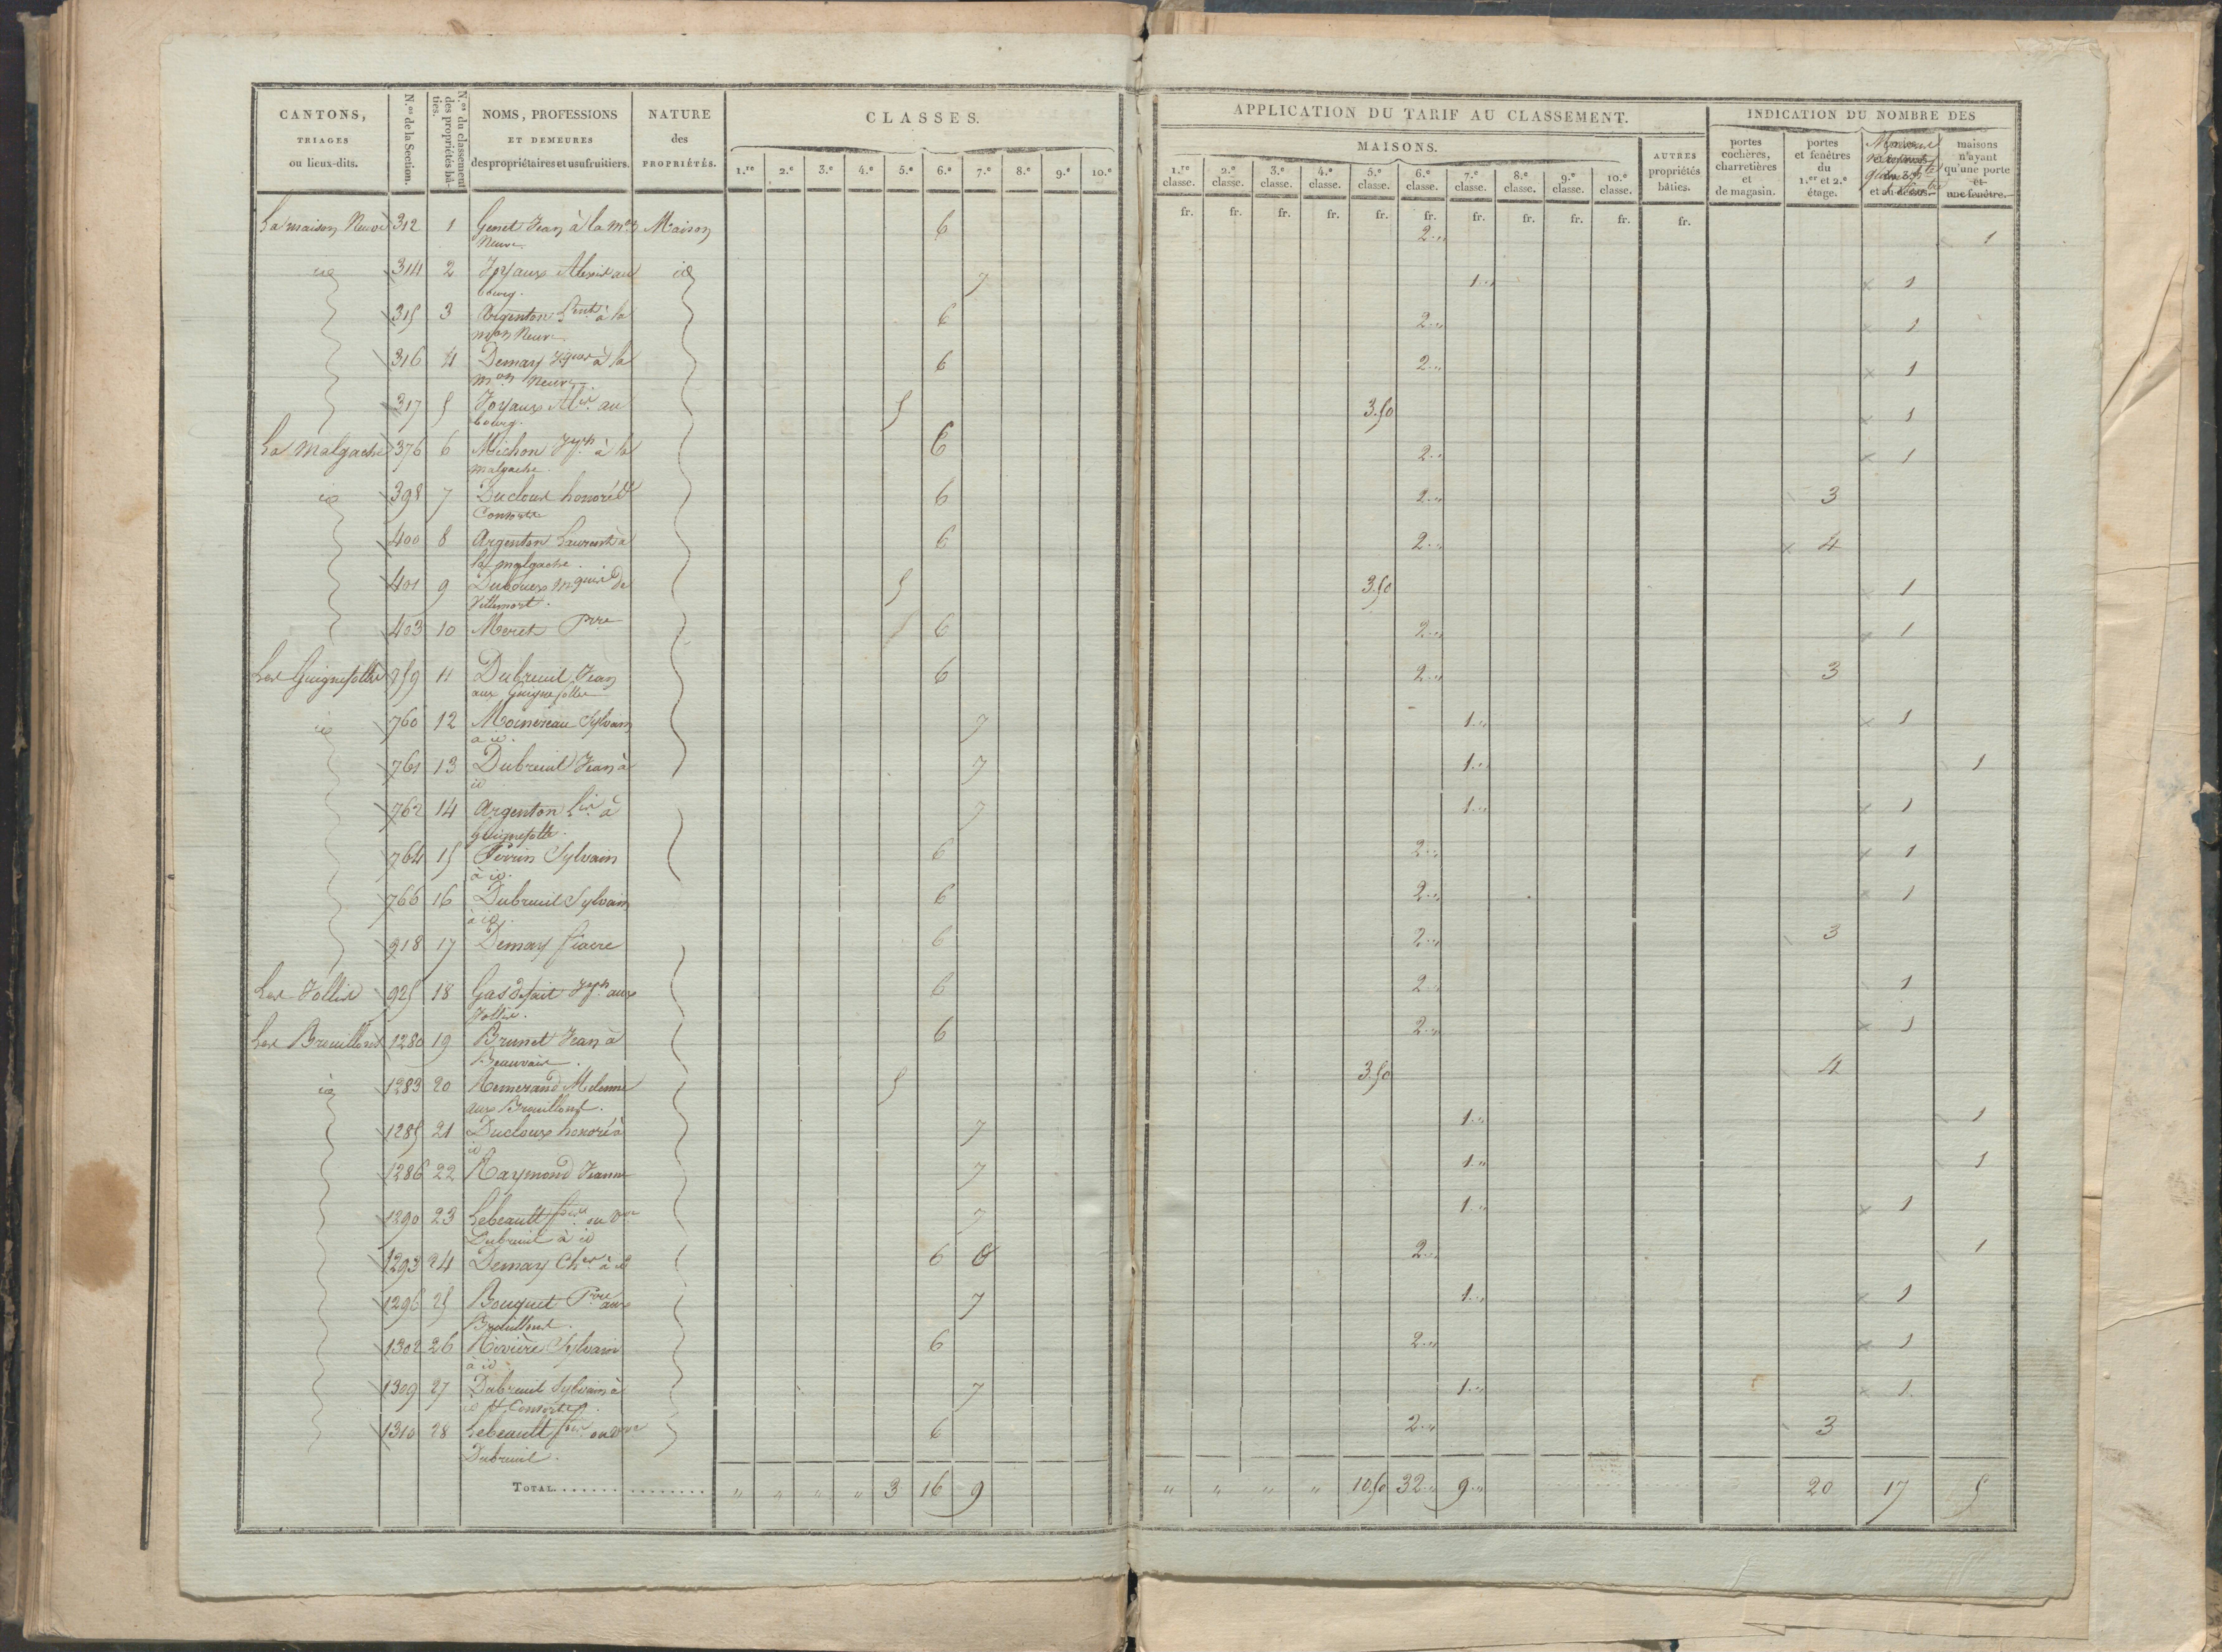 CANTONS, TRIAGES ou lieux-dits. | N.os de la Section. | N.os du classement des propriétés bâties. | NOMS, PROFESSIONS ET DEMEURES des propriétaires et usufruitiers. | NATURE des PROPRIÉTÉS. | CLASSES.
1.re 2.e 3.e 4.e 5.e 6.e 7.e 8.e 9.e 10.e
APPLICATION DU TARIF AU CLASSEMENT.
MAISONS.
1.re classe. 2.e classe. 3.e classe. 4.e classe. 5.e classe. 6.e classe. 7.e classe. 8.e classe. 9.e classe. 10.e classe.
AUTRES propriétés bâties.
INDICATION DU NOMBRE DES
portes cochères, charretières et de magasin.
portes et fenêtres du 1.er et 2.e étage.
et au-dessus.
maisons n'ayant qu'une porte et une fenêtre.
fr. fr. fr. fr. fr. fr. fr. fr. fr. fr. fr.
La maison Neuve 312 1 Genet Jean à la mon Maison 6 2 " 1
Neuve
id 314 2 Joyaux Alexis au id 7 1 " 1
bourg.
315 3 Argenton à la 6 2 " 1
mon Neuve
316 4 Demay Jques à la 6 2 " 1
mon Neuve.
317 5 Joyaux Alis au 5 3.50 1
bourg.
La Malgache 376 6 Michon Jph à la 6 2 " 1
malgache.
id 398 7 Ducloux honoré & 6 2 " 3
Consorts
400 8 Argenton Laurent à 6 2 " 4
la malgache.
401 9 Duboueix mquis de 5 3.50 1
Villemort.
403 10 Meret Pre 6 2 " 1
Les Guignefolles 759 11 Dubreuil Jean 6 2 " 3
aux Guignefolles
id 760 12 Moinereau Sylvain 7 1 " 1
a id.
761 13 Dubreuil Jean à 7 1 " 1
id
762 14 Argenton à 7 1 " 1
Guignefolle.
764 15 Perrin Sylvain 6 2 " 1
à id.
766 16 Dubreuil Sylvain 6 2 " 1
à id.
918 17 Demay fiacre 6 2 " 3
Les Jollis 925 18 Gasdefait Jph aux 6 2 " 1
Jollis.
Les Breuillons 1280 19 Brunet Jean à 6 2 " 1
Beauvais.
id 1283 20 Remerand 5 3.50 4
aux Breuillons.
1285 21 Ducloux honoré à 7 1 " 1
id
1286 22 Raymond Jeanne 7 1 " 1
1290 23 Lebeault ou Vve 7 1 " 1
Dubreuil à id
1293 24 Demay Chles à id 6 2 " 1
1296 25 Bouquet Pre aux 7 1 " 1
Breuillons.
1302 26 Rivière Sylvain 6 2 " 1
à id
1309 27 Dubreuil Sylvain à 7 1 " 1.
id & Consorts.
1310 28 Lebeault ou Vve 6 2 " 3
Dubreuil.
TOTAL " " " " 3 16 9 " " " " 10.50 32 " 9 " 20 17 5